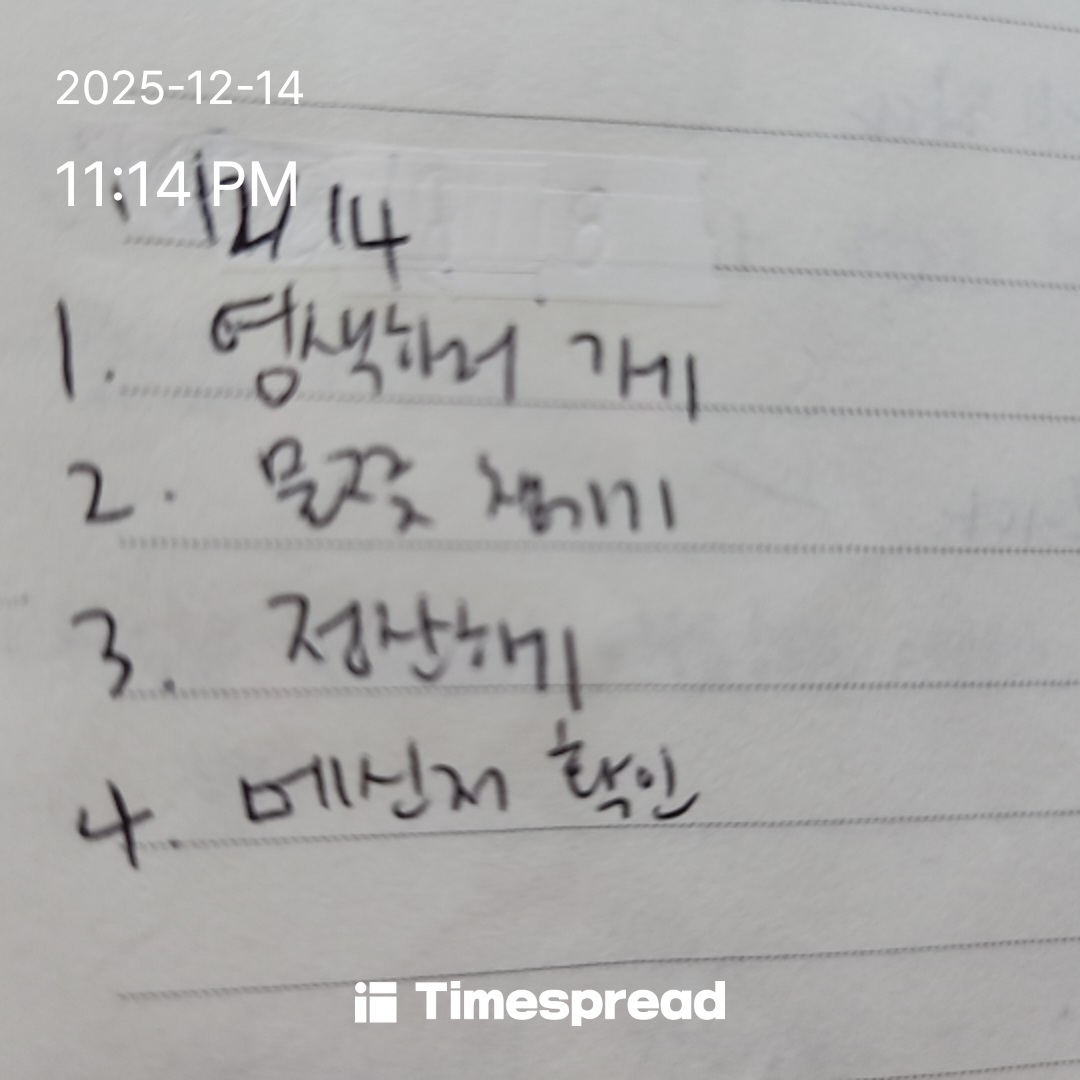 2025-12-14
11:14 PM
12 14
1. 염색하러 가기
2. 물꽂 챙기기
3. 정산하기
4. 메신저 확인
Timespread